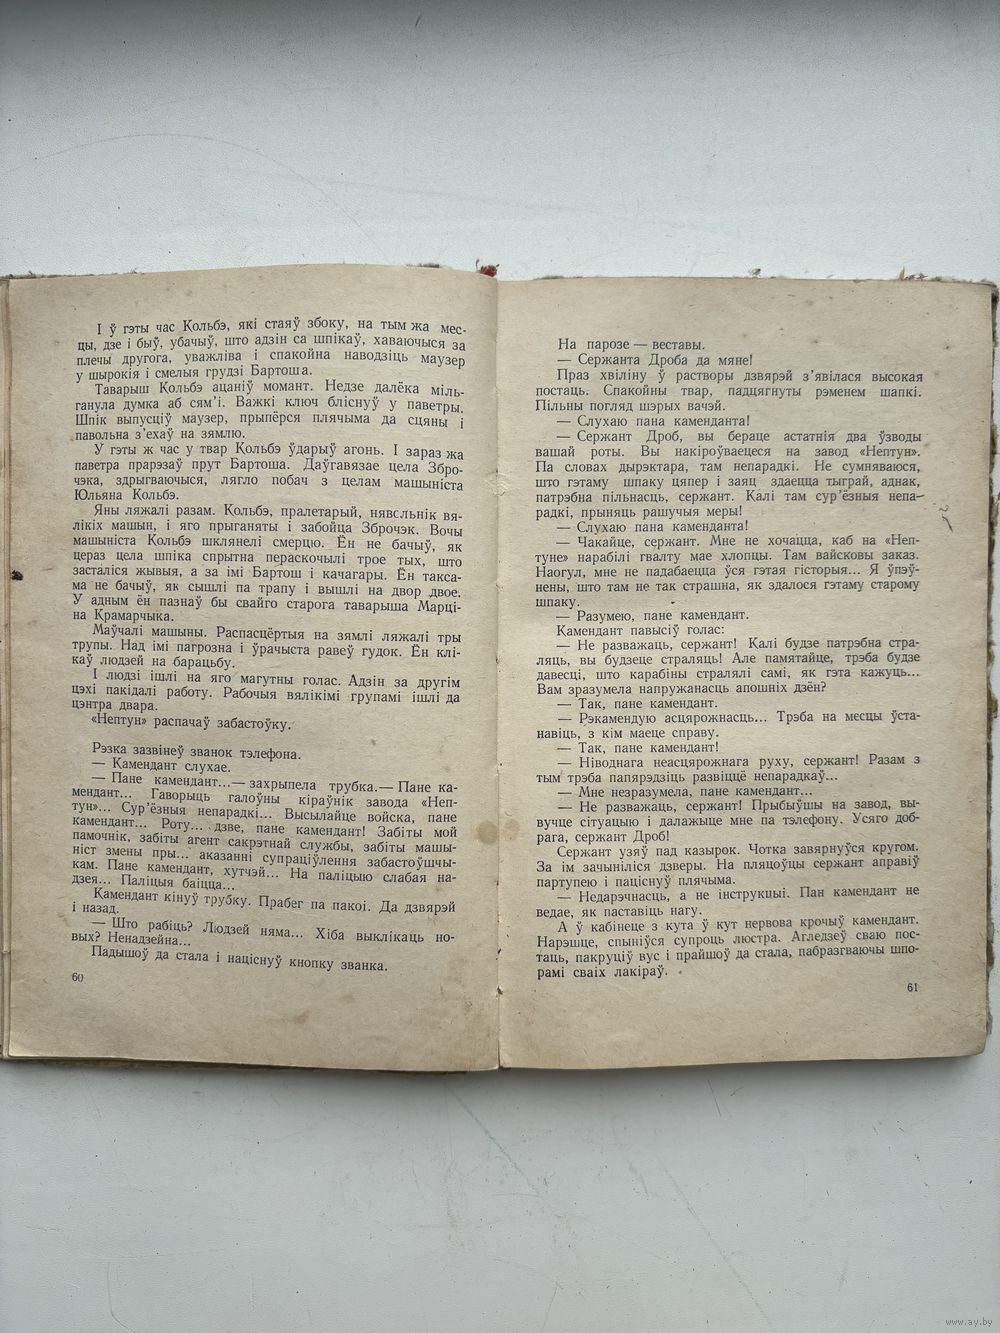 І ў гэты час Кольбэ, які стаяў збоку, на тым жа мес-
цы, дзе і быў, убачыў, што адзін са шпікаў, хаваючыся за
плечы другога, уважліва і спакойна наводзіць маузер
у шырокія і смелыя грудзі Бартоша.
Таварыш Кольбэ ацаніў момант. Недзе далёка міль-
ганула думка аб сям’і. Важкі ключ бліснуў у паветры.
Шпік выпусціў маузер, прыпёрся плячыма да сцяны і
павольна з’ехаў на зямлю.
У гэты ж час у твар Кольбэ ўдарыў агонь. І зараз жа
паветра прарэзаў прут Бартоша. Даўгавязае цела Збро-
чэка, здрыгваючыся, лягло побач з целам машыніста
Юльяна Кольбэ.
Яны ляжалі разам. Кольбэ, пралетарый, нявольнік вя-
лікіх машын, і яго прыганяты і забойца Зброчэк. Вочы
машыніста Кольбэ шклянелі смерцю. Ён не бачыў, як
цераз цела шпіка спрытна пераскочылі трое тых, што
засталіся жывыя, а за імі Бартош і качагары. Ён такса-
ма не бачыў, як сышлі па трапу і вышлі на двор двое.
У адным ён пазнаў бы свайго старога таварыша Марці-
на Крамарчыка.
Маўчалі машыны. Распасцёртыя на зямлі ляжалі тры
трупы. Над імі пагрозна і ўрачыста равеў гудок. Ён клі-
каў людзей на барацьбу.
І людзі ішлі на яго магутны голас. Адзін за другім
цэхі пакідалі работу. Рабочыя вялікімі групамі ішлі да
цэнтра двара.
«Нептун» распачаў забастоўку.
Рэзка зазвінеў званок тэлефона.
— Камендант слухае.
— Пане камендант...— захрыпела трубка.— Пане ка-
мендант... Гаворыць галоўны кіраўнік завода «Неп-
тун»... Сур’ёзныя непарадкі... Высылайце войска, пане
камендант... Роту... дзве, пане камендант! Забіты мой
памочнік, забіты агент сакрэтнай службы, забіты машы-
ніст змены пры... аказанні супраціўлення забастоўшчы-
кам. Пане камендант, хутчэй... На паліцыю слабая на-
дзея... Паліцыя баіцца...
Камендант кінуў трубку. Прабег па пакоі. Да дзвярэй
і назад.
— Што рабіць? Людзей няма... Хіба выклікаць но-
вых? Ненадзейна...
Падышоў да стала і націснуў кнопку званка.
60
На парозе — веставы.
— Сержанта Дроба да мяне!
Праз хвіліну ў растворы дзвярэй з’явілася высокая
постаць. Спакойны твар, падцягнуты рэменем шапкі.
Пільны погляд шэрых вачэй.
— Слухаю пана каменданта!
— Сержант Дроб, вы бераце астатнія два ўзводы
вашай роты. Вы накіроўваецеся на завод «Нептун».
Па словах дырэктара, там непарадкі. Не сумняваюся,
што гэтаму шпаку цяпер і заяц здаецца тыграй, аднак,
патрэбна пільнасць, сержант. Калі там сур’ёзныя непа-
радкі, прыняць рашучыя меры!
— Слухаю пана каменданта!
— Чакайце, сержант. Мне не хочацца, каб на «Неп-
туне» нарабілі гвалту мае хлопцы. Там вайсковы заказ.
Наогул, мне не падабаецца ўся гэтая гісторыя... Я ўпэў-
нены, што там не так страшна, як здалося гэтаму старому
шпаку.
— Разумею, пане камендант.
Камендант павысіў голас:
— Не разважаць, сержант! Калі будзе патрэбна стра-
ляць, вы будзеце страляць! Але памятайце, трэба будзе
давесці, што карабіны стралялі самі, як гэта кажуць...
Вам зразумела напружанасць апошніх дзён?
— Так, пане камендант.
— Рэкамендую асцярожнасць... Трэба на месцы ўста-
навіць, з кім маеце справу.
— Так, пане камендант!
— Ніводнага неасцярожнага руху, сержант! Разам з
тым трэба папярэдзіць развіццё непарадкаў...
— Мне незразумела, пане камендант...
— Не разважаць, сержант! Прыбыўшы на завод, вы-
вучце сітуацыю і далажыце мне па тэлефону. Усяго доб-
рага, сержант Дроб!
Сержант узяў пад казырок. Чотка завярнуўся кругом.
За ім зачыніліся дзверы. На пляцоўцы сержант аправіў
партупею і паціснуў плячыма.
— Недарэчнасць, а не інструкцыі. Пан камендант не
ведае, як паставіць нагу.
А ў кабінеце з кута ў кут нервова крочыў камендант.
Нарэшце, спыніўся супроць люстра. Агледзеў сваю пос-
таць, пакруціў вус і прайшоў да стала, пабразгваючы шпо-
рамі сваіх лакіраў.
61
www.ay.by